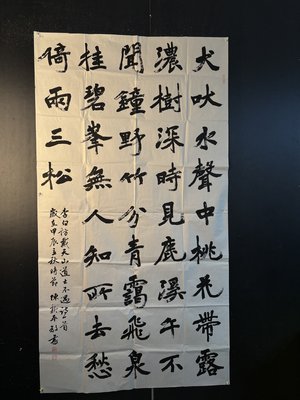 犬吠水聲中桃花帶露
濃樹深時見鹿溪午不
聞鐘野竹分青靄飛泉
挂碧峯無人知所去愁
倚兩三松
李白訪戴天山道士不遇詩一首
歲在甲辰立秋時節 陳 書